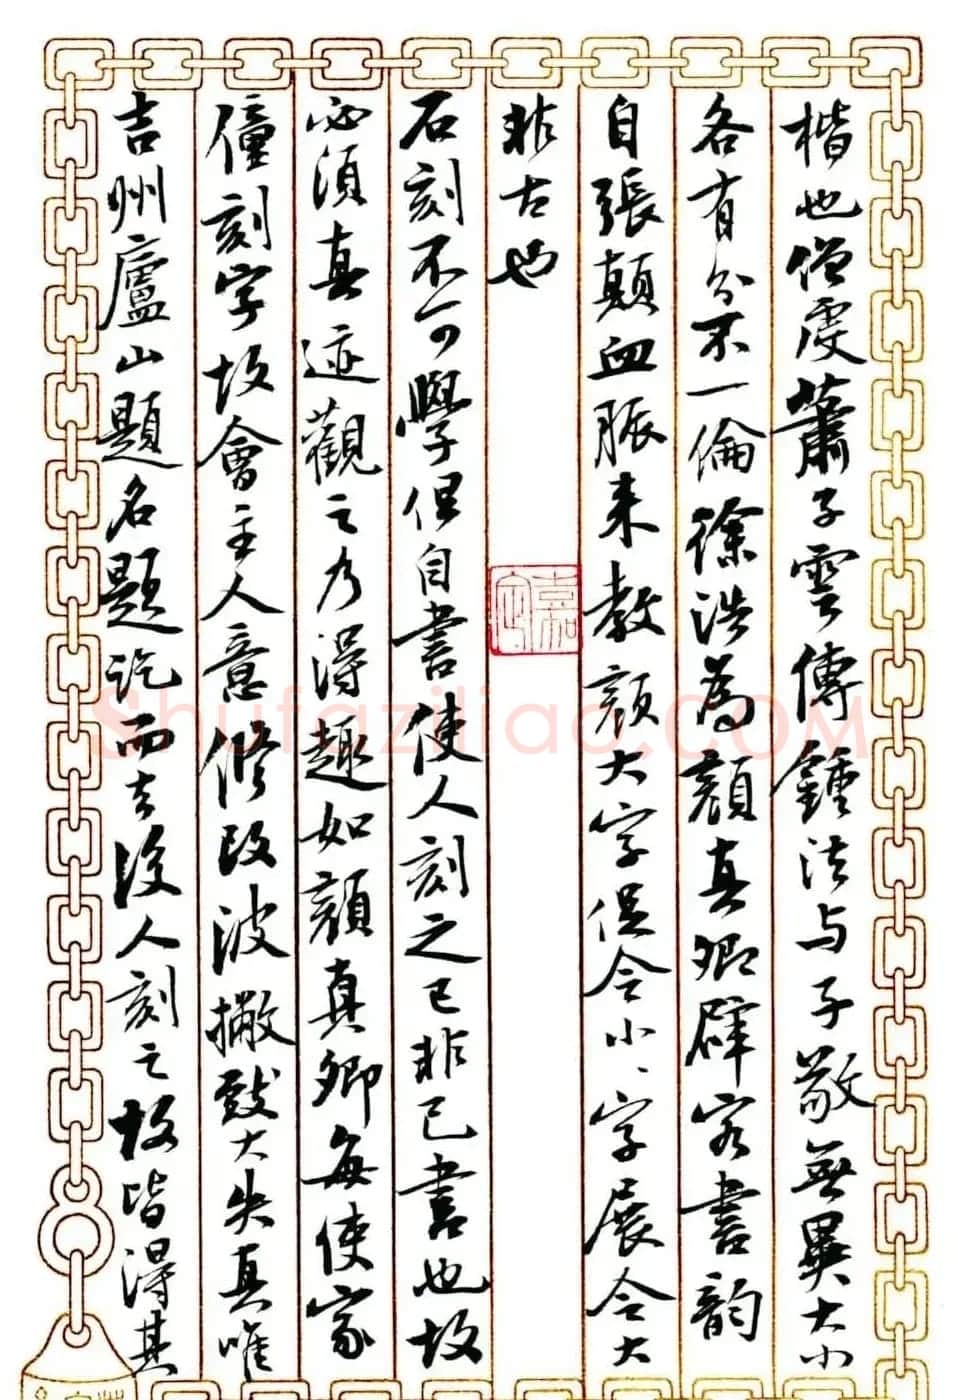 楷也僧虔蕭子雲傳鍾法与子敬無異大小
各有分不一倫徐浩為顏真卿辟客書韵
自張顛血脈来教顏大字促令小、字展令大
非古也
石刻不可學但自書使人刻之已非己書也故
必須真迹觀之乃得趣如顏真卿每使家
僮刻字故會主人意修改波撇致大失真唯
吉州廬山題名題訖而去後人刻之故皆得其
Shufaziliao.COM